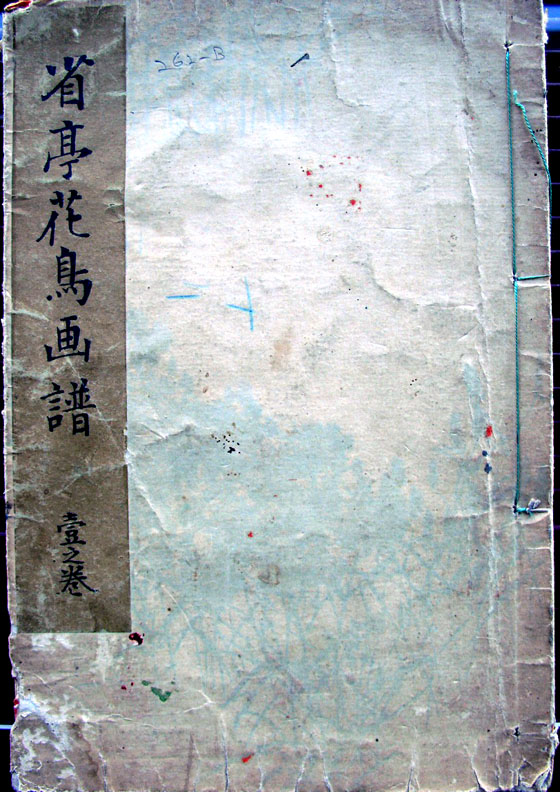 省亭花鳥画譜
壹之巻
262-B